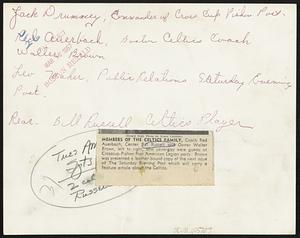 Jack Drummey, Commander of Cross Cup Pishon Post.
Red Auerbach, Boston Celtics Coach
Walter Brown
Leo Maher, Public Relations Saturday Evening
Post
Rear. Bill Russell Celtics Player
Tues AM
2 col
Russell
MEMBERS OF THE CELTICS FAMILY, Coach Red
Auerbach, Center Bill Russell and Owner Walter
Brown, left to right, yesterday were guests of
Crosscup-Pishon Post American Legion party. Brown
was presented a leather-bound copy of the next issue
of The Saturday Evening Post which will carry a
feature article about the Celtics.